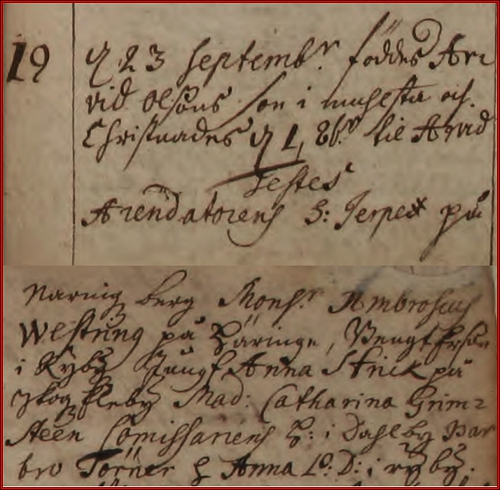 19 d 23 Septembr föddes Ar=
vid Olsons son i muhlsta och
Christnades d 1, 8br til Arvid
Testes
Arendatorens H: Jerpe på
Narning berg Monsr Ambrosius
Westring på Häringe, Bengt Ersson
i Ryby Jungf Anna Strick på
Skogzkleby Mad: Catharina Grim=
steen Comissariens H: i Dahlby Bar
bro Törner & Anna L: D: i ryby.